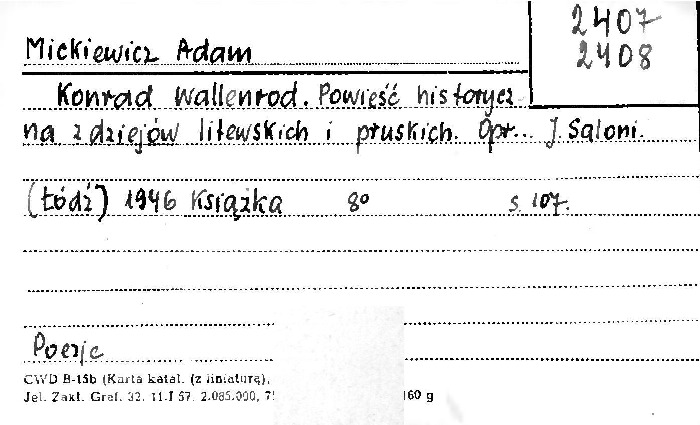 2407
2408
Mickiewicz Adam
Konrad Wallenrod. Powieść historycz
na z dziejów litewskich i pruskich. Opr... J. Saloni.
(Łódź) 1946 Książka 8° s. 107.
Poezje
CWD B-15b (Karta katal. (z liniaturą),
Jel. Zakł. Graf. 32. 11-I 57. 2.085.000, 7
160 g